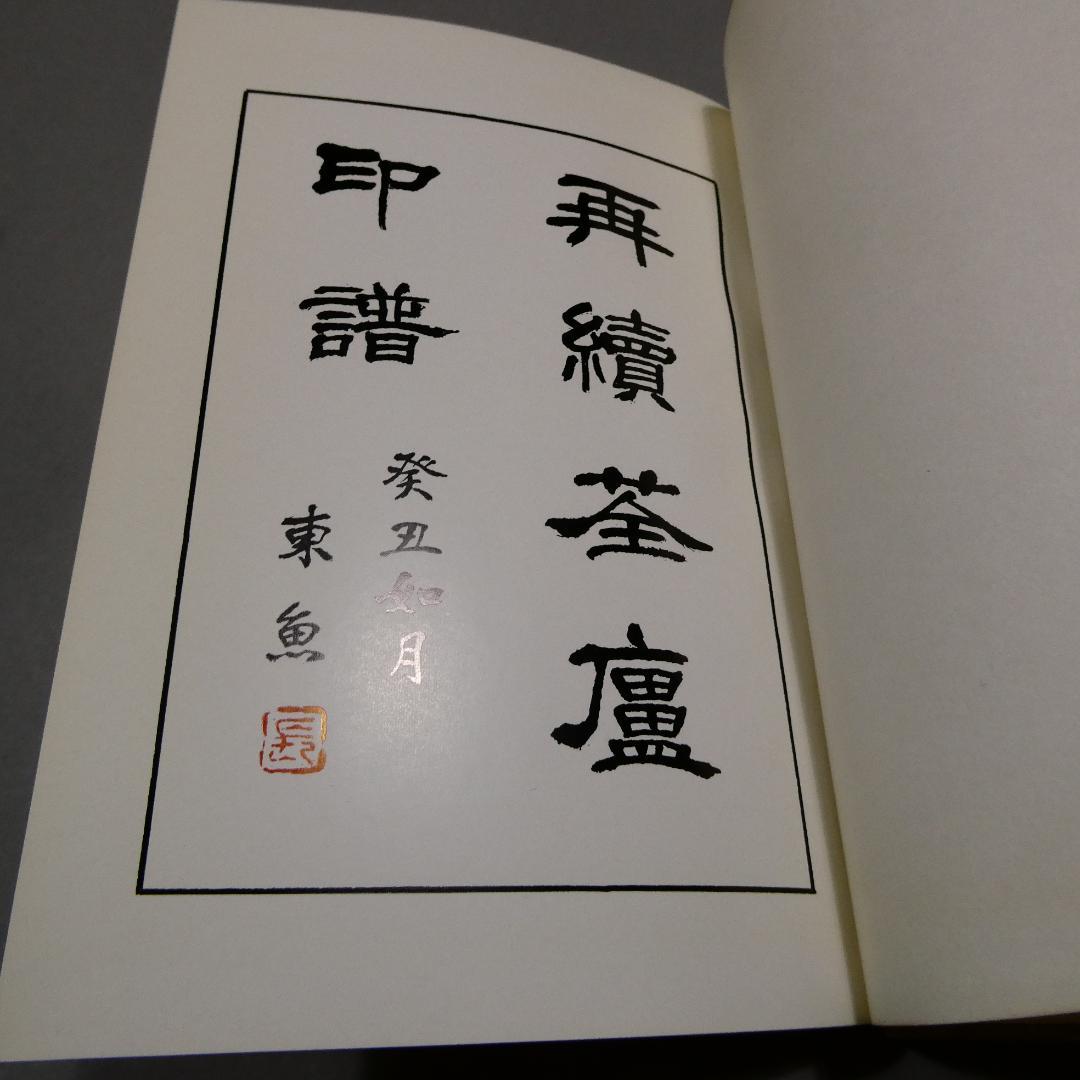 再續荃廬
印譜
癸丑如月
東魚